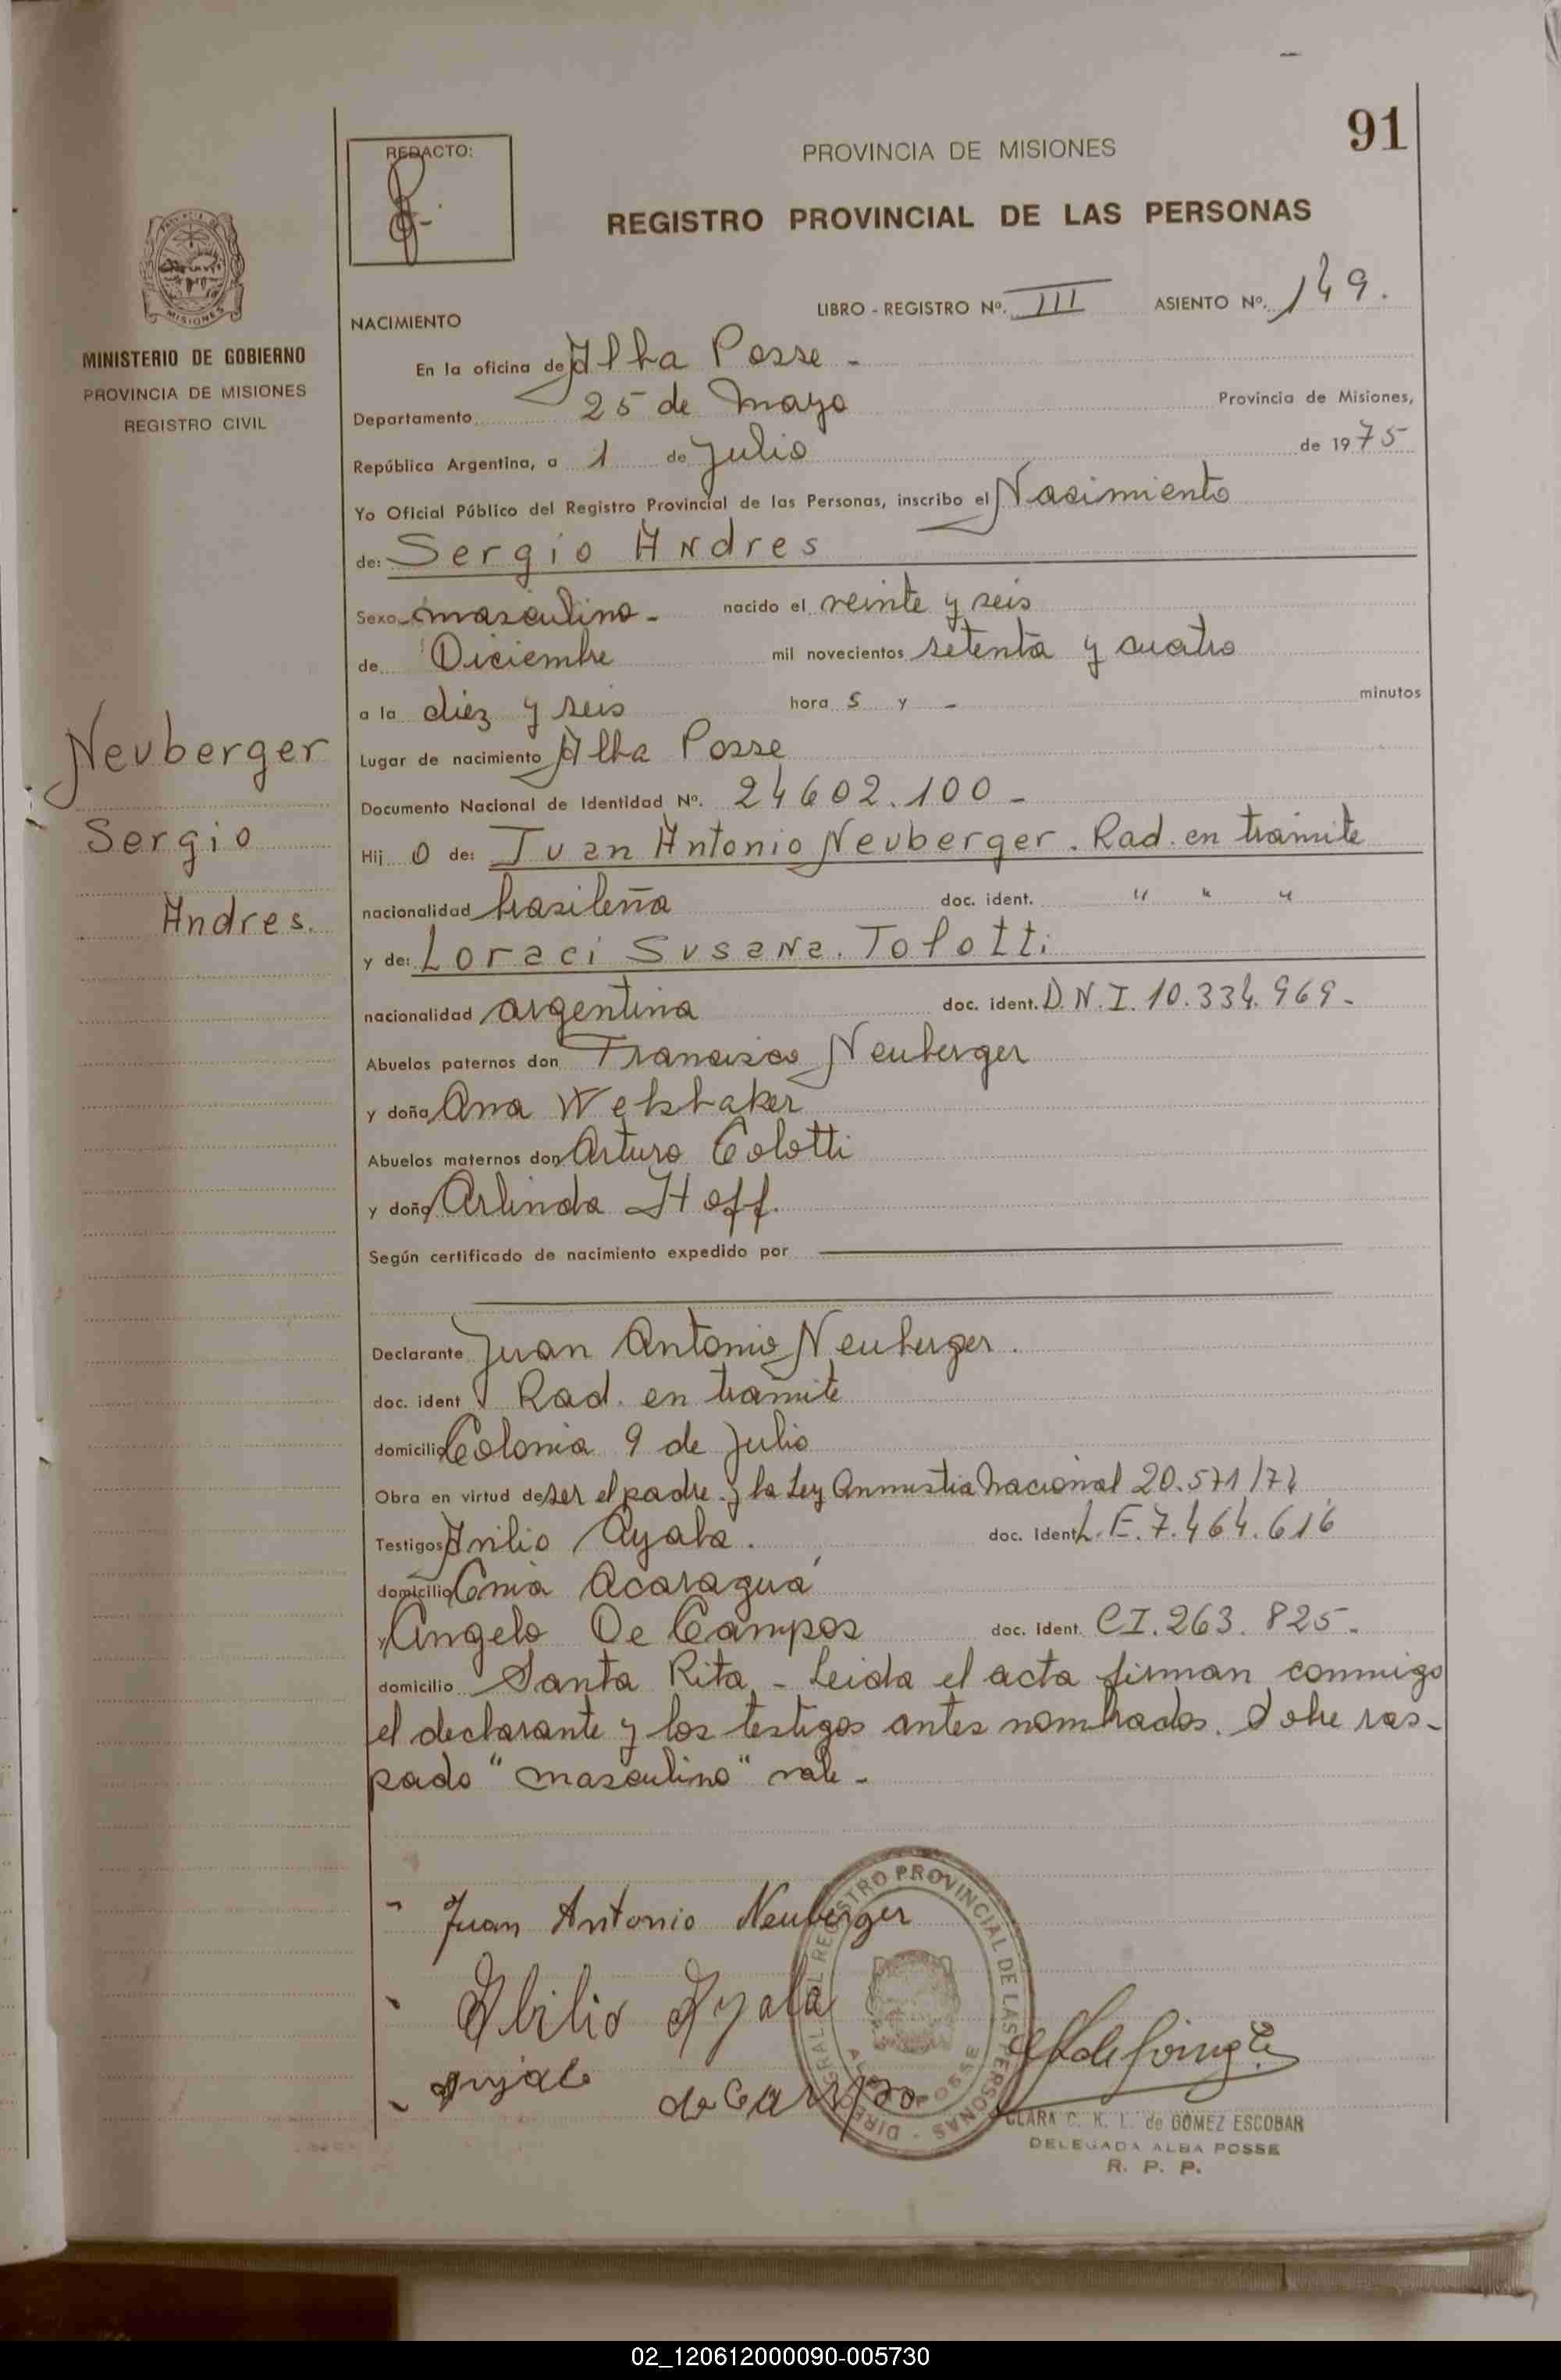 91
REDACTO:
PROVINCIA DE MISIONES
REGISTRO PROVINCIAL DE LAS PERSONAS
LIBRO - REGISTRO Nº. III ASIENTO Nº. 149.
NACIMIENTO
MINISTERIO DE GOBIERNO
PROVINCIA DE MISIONES
REGISTRO CIVIL
En la oficina de Alba Posse -
Departamento 25 de Mayo Provincia de Misiones,
República Argentina, a 1 de Julio de 1975
Yo Oficial Público del Registro Provincial de las Personas, inscribo el Nacimiento
de: Sergio Andres
Sexo masculino - nacido el veinte y seis
de Diciembre mil novecientos setenta y cuatro
a la diez y seis hora s y - minutos
Neuberger
Sergio
Andres.
Lugar de nacimiento Alba Posse
Documento Nacional de Identidad Nº. 24602.100 -
Hij o de: Juan Antonio Neuberger. Rad. en tramite
nacionalidad brasileña doc. ident. " " "
y de: Loraci Susana. Tolotti
nacionalidad argentina doc. ident. D.N.I. 10.334.969 -
Abuelos paternos don Francisco Neuberger
y doña Ana
Abuelos maternos don Arturo Colotti
y doña Arlinda Hoff.
Según certificado de nacimiento expedido por
Declarante Juan Antonio Neuberger.
doc. ident Rad. en tramite
domicilio Colonia 9 de Julio
Obra en virtud de ser el padre. y la Ley Anmustia Nacional 20.571/74
Testigos Avilio Ayala. doc. Ident L.E. 7.464.616
domicilio Cnia Acaragua
y Angelo De Campos doc. Ident. CI. 263.825 -
domicilio Santa Rita - Leida el acta firman conmigo
el declarante y los testigos antes nombrados. Sobre ras-
pado "masculino" vale -
Juan Antonio Neuberger
Abilio Ayala
de Campo
DIRECCION GENERAL DEL REGISTRO PROVINCIAL DE LAS PERSONAS -
ALBA POSSE
CLARA C. K. L. de GOMEZ ESCOBAR
DELEGADA ALBA POSSE
R. P. P.
02_120612000090-005730